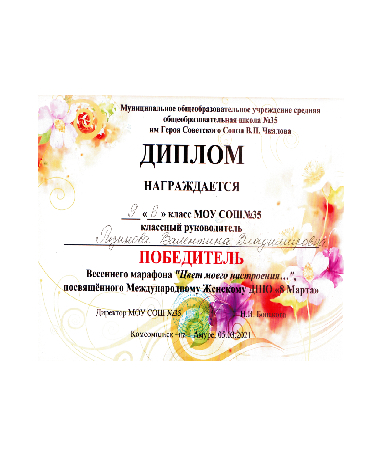 Муниципальное общеобразовательное учреждение средняя
общеобразовательная школа №35
им Героя Советского Союза В.П. Чкалова
ДИПЛОМ
НАГРАЖДАЕТСЯ
9 « В » класс МОУ СОШ №35
классный руководитель
Валентина Владимировна
ПОБЕДИТЕЛЬ
Весеннего марафона "Цвет моего настроения…",
посвящённого Международному Женскому ДНЮ «8 Марта»
Директор МОУ СОШ №35
Комсомольск –на – Амуре, 05.03.2021